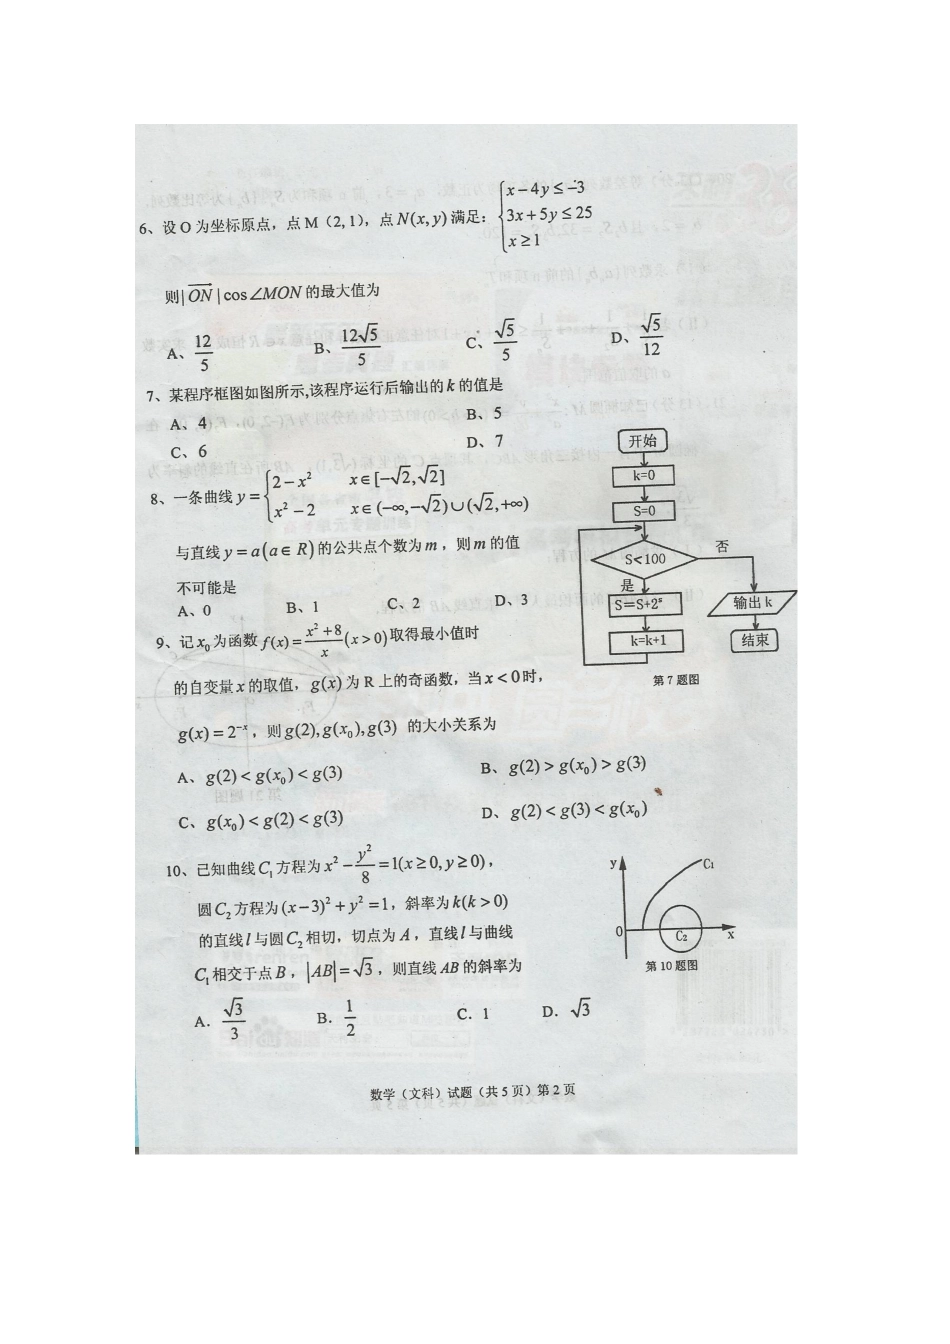 6、设 O 为坐标原点，点 M（2, 1），点 N(x, y) 满足：{x－4y≤－3
3x＋5y≤25
x≥1
则|ON|cos∠MON 的最大值为
A、12/5 B、12√5/5 C、√5/5 D、√5/12
7、某程序框图如图所示,该程序运行后输出的 k 的值是
A、4 B、5
C、6 D、7
8、一条曲线 y＝{2－x² x∈[－√2,√2]
x²－2 x∈(－∞,－√2)∪(√2,+∞)
与直线 y＝a(a∈R)的公共点个数为 m，则 m 的值
不可能是
A、0 B、1 C、2 D、3
开始
k=0
S=0
S<100
否
是
S＝S+2ˢ
输出 k
k=k+1
结束
第 7 题图
9、记 x₀ 为函数 f(x)＝(x²+8)/x (x＞0)取得最小值时
的自变量 x 的取值，g(x) 为 R 上的奇函数，当 x＜0时，
g(x)＝2⁻ˣ，则 g(2),g(x₀),g(3) 的大小关系为
A、g(2)＜g(x₀)＜g(3) B、g(2)＞g(x₀)＞g(3)
C、g(x₀)＜g(2)＜g(3) D、g(2)＜g(3)＜g(x₀)
10、已知曲线 C₁ 方程为 x²－y²/8＝1(x≥0, y≥0)，
圆 C₂ 方程为 (x－3)²＋y²＝1，斜率为 k(k＞0)
的直线 l 与圆 C₂ 相切，切点为 A，直线 l 与曲线
C₁ 相交于点 B，|AB|＝√3，则直线 AB 的斜率为
A．√3/3 B．1/2 C．1 D．√3
y
C₁
0
C₂
x
第 10 题图
数学（文科）试题（共 5 页）第 2 页